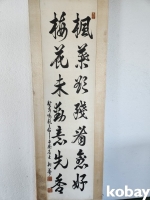 楓葉欲殘看愈好
梅花未動意先香
kobay